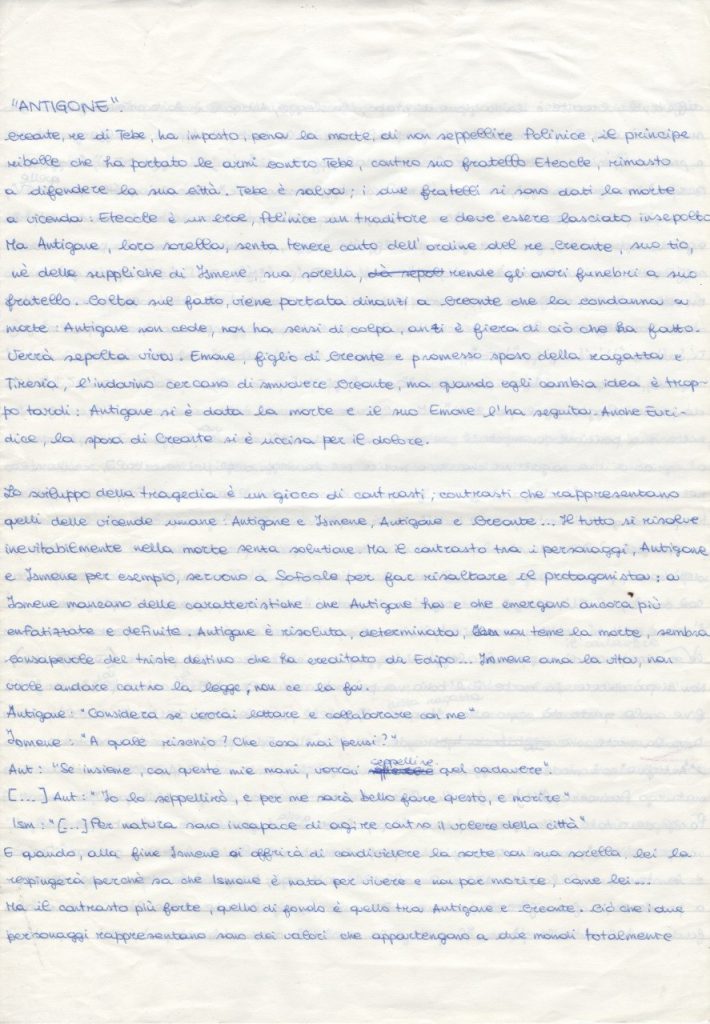 "ANTIGONE".
Creonte, re di Tebe, ha imposto, pena la morte, di non seppellire Polinice, il principe
ribelle che ha portato le armi contro Tebe, contro suo fratello Eteocle, rimasto
a difendere la sua città. Tebe è salva; i due fratelli si sono dati la morte
a vicenda: Eteocle è un eroe, Polinice un traditore e deve essere lasciato insepolto.
Ma Antigone, loro sorella, senza tenere conto dell'ordine del re Creonte, suo zio,
nè delle suppliche di Ismene, sua sorella, dà sepol rende gli onori funebri a suo
fratello. Colta sul fatto, viene portata dinanzi a Creonte che la condanna a
morte: Antigone non cede, non ha sensi di colpa, anzi è fiera di ciò che ha fatto.
Verrà sepolta viva. Emone, figlio di Creonte e promesso sposo della ragazza e
Tiresia, l'indovino cercano di smuovere Creonte, ma quando egli cambia idea è trop-
po tardi: Antigone si è data la morte e il suo Emone l'ha seguita. Anche Euri-
dice, la sposa di Creonte si è uccisa per il dolore.
Lo sviluppo della tragedia è un gioco di contrasti, contrasti che rappresentano
quelli delle vicende umane: Antigone e Ismene, Antigone e Creonte... Il tutto si risolve
inevitabilmente nella morte senza soluzione. Ma il contrasto tra i personaggi, Antigone
e Ismene per esempio, servono a Sofocle per far risaltare il protagonista; a
Ismene mancano delle caratteristiche che Antigone ha e che emergono ancora più
enfatizzate e definite. Antigone è risoluta, determinata, non teme la morte, sembra
consapevole del triste destino che ha ereditato da Edipo... Ismene ama la vita, non
vuole andare contro la legge, non ce la fa.
Antigone: "Considera se vorrai lottare e collaborare con me"
Ismene: "A quale rischio? Che cosa mai pensi?"
Ant: "Se insieme, con queste mie mani, vorrai seppellire quel cadavere".
[...] Ant: "Io lo seppellirò, e per me sarà bello fare questo, e morire"
Ism: "[...] Per natura sono incapace di agire contro il volere della città"
E quando, alla fine Ismene si offrirà di condividere la sorte con sua sorella, lei la
respingerà perchè sa che Ismene è nata per vivere e non per morire, come lei...
Ma il contrasto più forte, quello di fondo è quello tra Antigone e Creonte. Ciò che i due
personaggi rappresentano sono dei valori che appartengono a due mondi totalmente